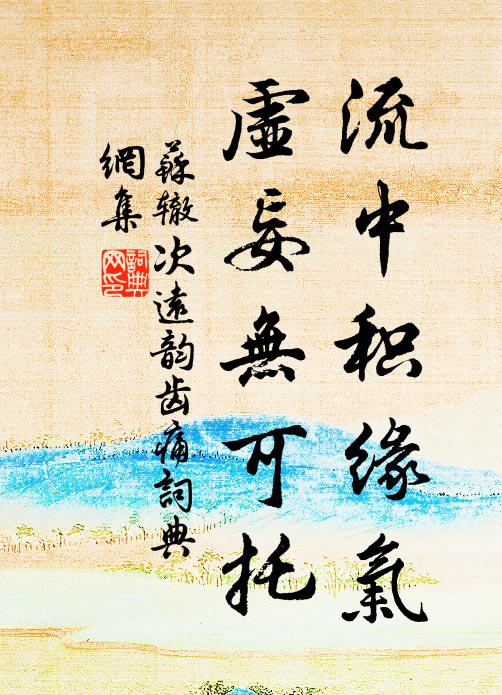 流中积缘氣
虛妄無可托
蘇辙次远韵齿痛詞典
網集
詞典
网印